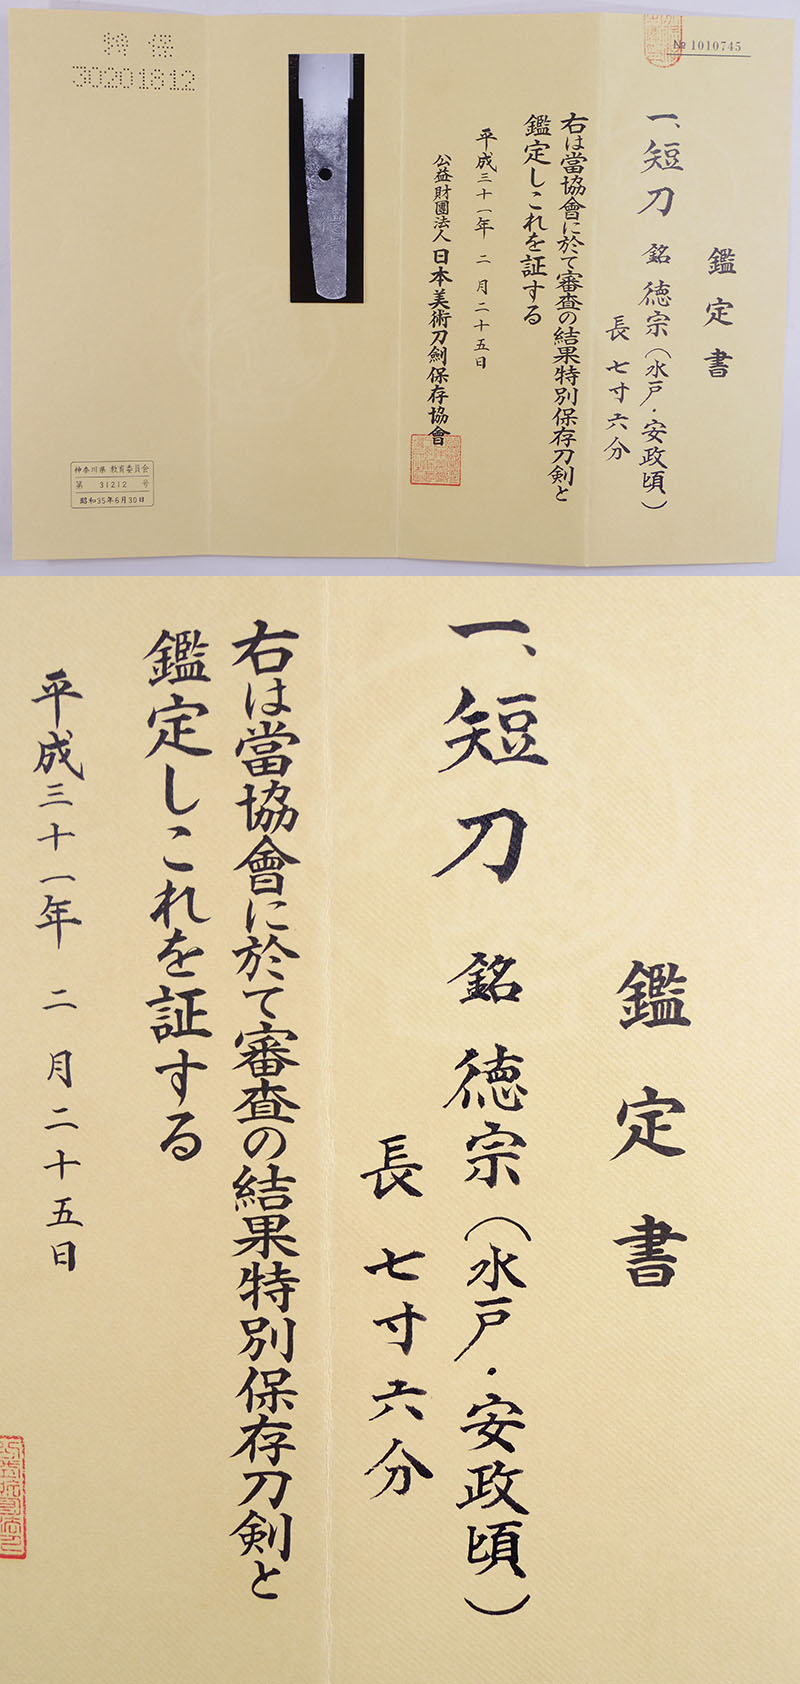 № 1010745
鑑定書
一、短刀 銘 徳宗(水戸・安政頃)
長 七寸六分
右は當協會に於て審査の結果特別保存刀剣と
鑑定しこれを証する
平成三十一年 二 月二十五日
公益財團法人 日本美術刀剣保存協會
特 保
30201812
神奈川県 教育委員会
第 31212 号
昭和35年6月30日
鑑定書
一、短刀 銘 徳宗(水戸・安政頃)
長 七寸六分
右は當協會に於て審査の結果特別保存刀剣と
鑑定しこれを証する
平成三十一年 二 月二十五日